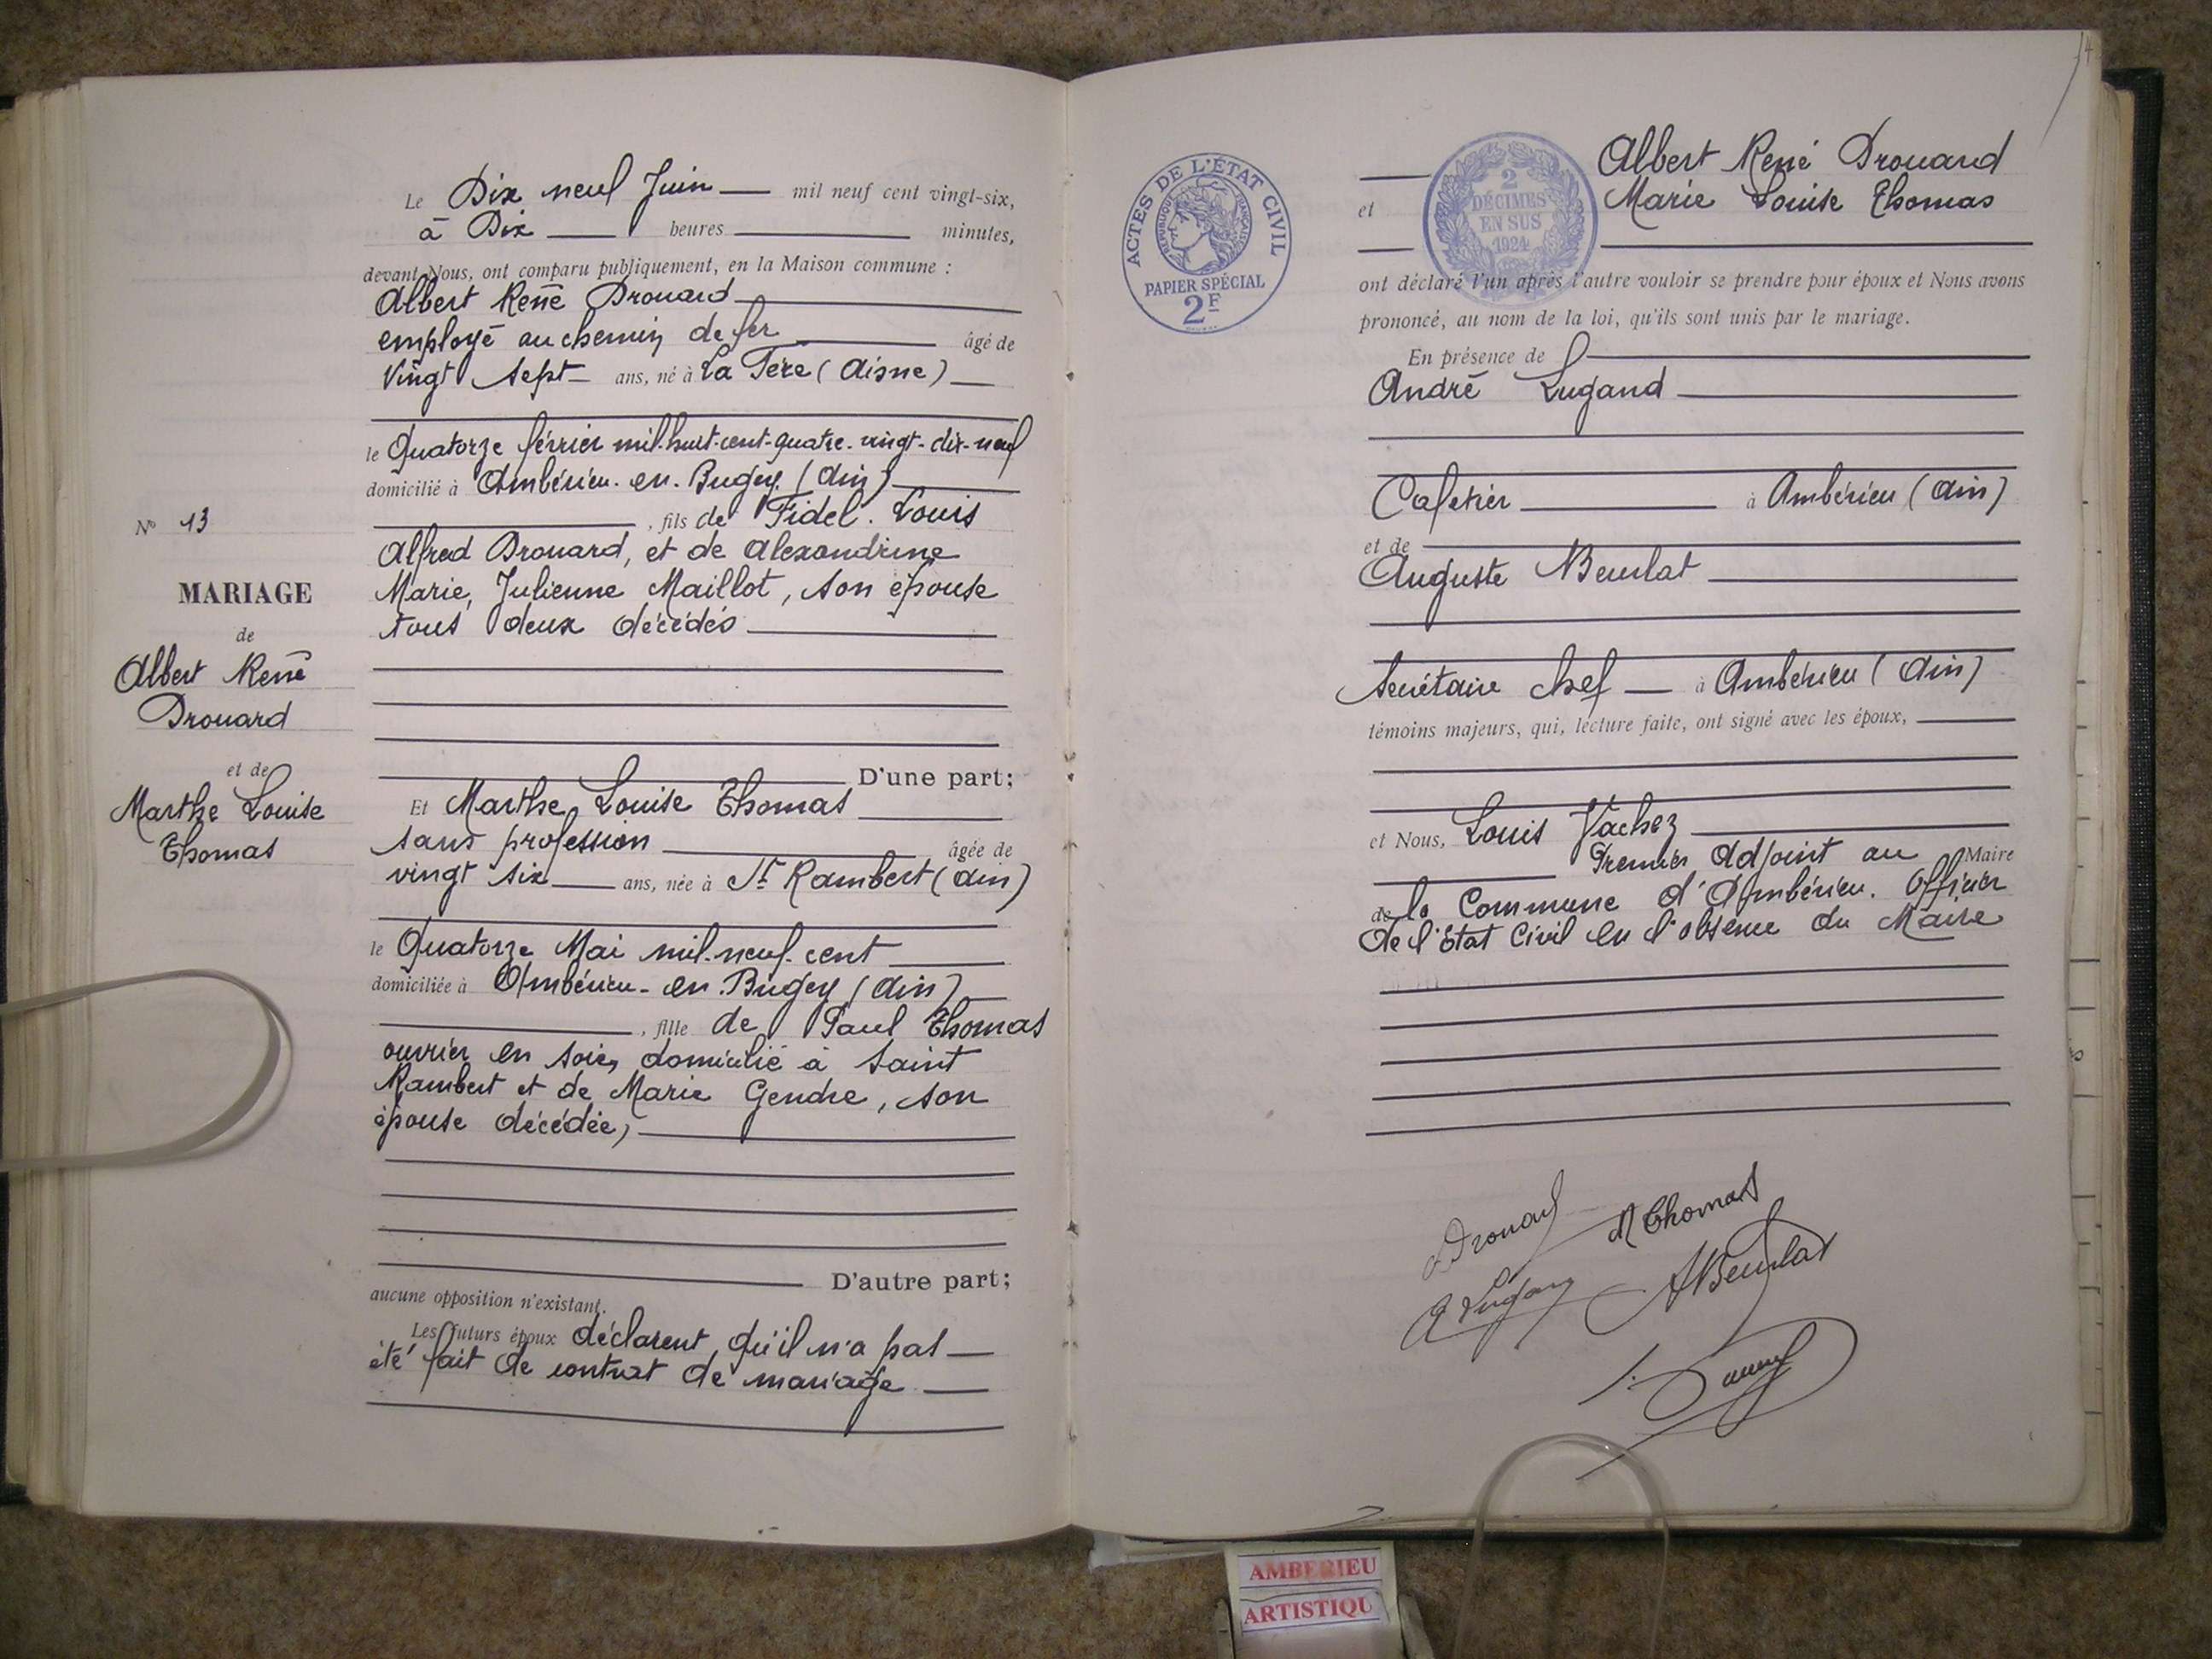 Le Dix neuf Juin mil neuf cent vingt-six,
à Dix heures minutes,
devant Nous, ont comparu publiquement, en la Maison commune :
Albert René Drouard
employé au chemin de fer âgé de
vingt sept ans, né à La Fère (Aisne)
le Quatorze février mil-huit-cent-quatre-vingt-dix-neuf
domicilié à Ambérieu-en-Bugey (Ain)
, fils de Fidel. Louis
Alfred Drouard, et de Alexandrine
Marie, Julienne Maillot, son épouse
tous deux décédés
D'une part;
Et Marthe Louise Thomas
sans profession âgée de
vingt six ans, née à St Rambert (Ain)
le Quatorze Mai mil-neuf-cent
domiciliée à Ambérieu-en-Bugey (Ain)
, fille de Paul Thomas
ouvrier en soie, domicilié à Saint
Rambert et de Marie Gendre, son
épouse décédée,
D'autre part;
aucune opposition n'existant.
Les futurs époux déclarent qu'il n'a pas
été fait de contrat de mariage
No 13
MARIAGE
de
Albert René
Drouard
et de
Marthe Louise
Thomas
14
ACTES DE L'ÉTAT CIVIL
RÉPUBLIQUE FRANÇAISE
PAPIER SPÉCIAL
2F
2
DÉCIMES
EN SUS
1924
Albert René Drouard
et Marie Louise Thomas
ont déclaré l'un après l'autre vouloir se prendre pour époux et Nous avons
prononcé, au nom de la loi, qu'ils sont unis par le mariage.
En présence de
André Lugand
Cafetier à Ambérieu (Ain)
et de
Auguste Beurlat
Secrétaire chef à Ambérieu (Ain)
témoins majeurs, qui, lecture faite, ont signé avec les époux,
et Nous, Louis Vachez
Premier Adjoint au Maire
de la Commune d'Ambérieu. Officier
de l'Etat Civil en l'absence du Maire
Drouard
M Thomas
A Lugand
A Beurlat
AMBERIEU
ARTISTIQU